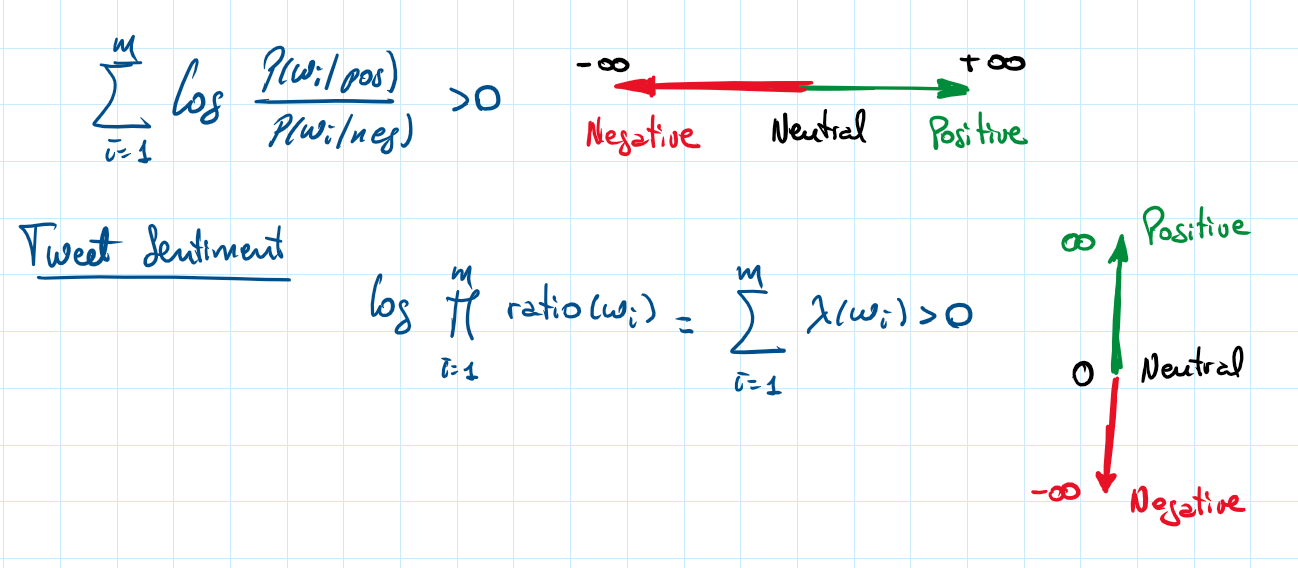 m
∑ log P(wi/pos) / P(wi/neg) >0
i=1
-∞ +∞
Negative Neutral Positive
Tweet Sentiment
m m
log ∏ ratio(wi) = ∑ λ(wi) >0
i=1 i=1
∞ Positive
0 Neutral
-∞ Negative